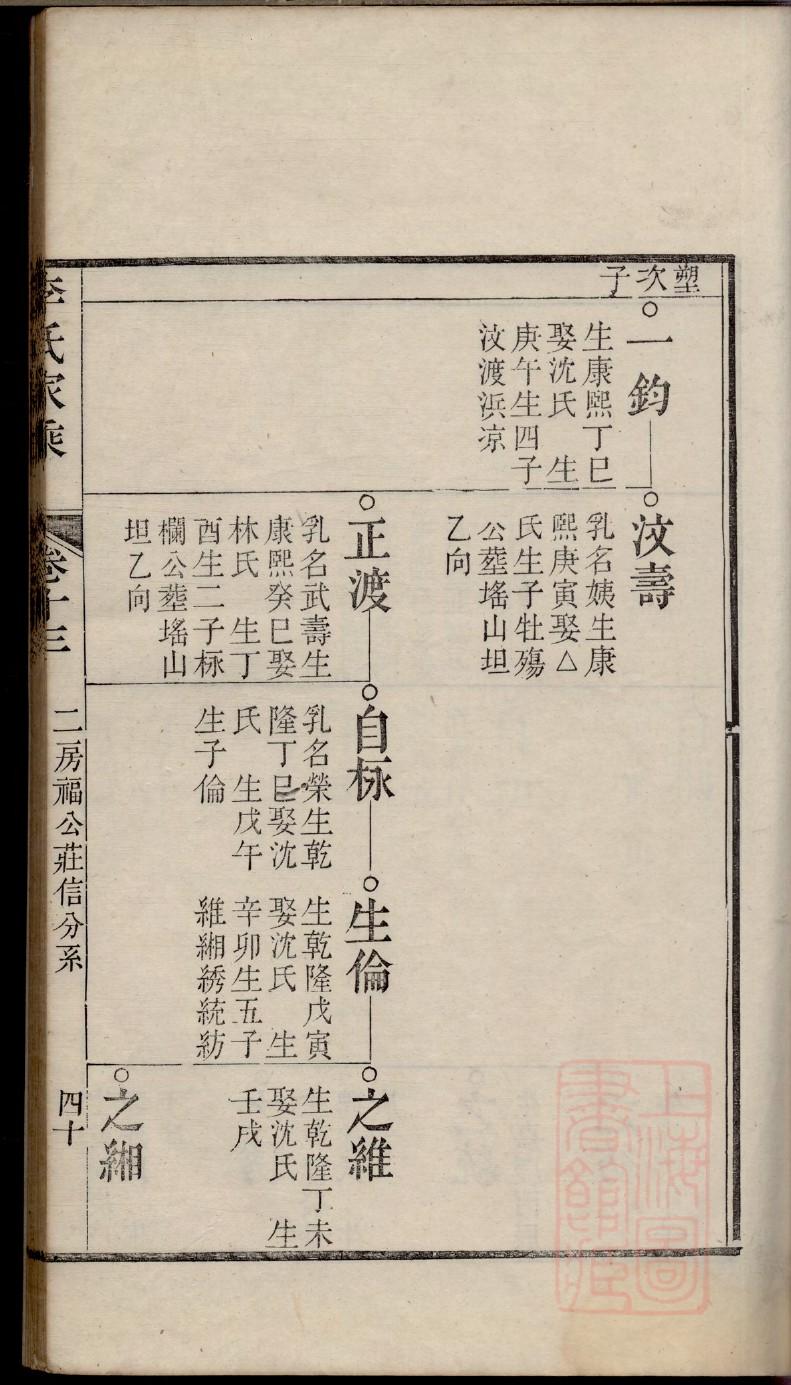 塑次子
一鈞
生康熙丁巳
娶沈氏　生
庚午生四子
汶渡浜凉
汶壽
乳名姨生康
熙庚寅娶△
氏生子牡殤
公塟壋山坦
乙向
正渡
乳名武壽生
康熙癸巳娶
林氏　生丁
酉生二子栐
欄公塟壋山
坦乙向
自栐
乳名榮生乾
隆丁巳娶沈
氏　生戊午
生子倫
生倫
生乾隆戊寅
娶沈氏　生
辛卯生五子
維緗綉統紡
之維
生乾隆丁未
娶沈氏　生
壬戌
之緗
李氏家乘
卷十三
二房福公莊信分系
四十
上海圖書館藏